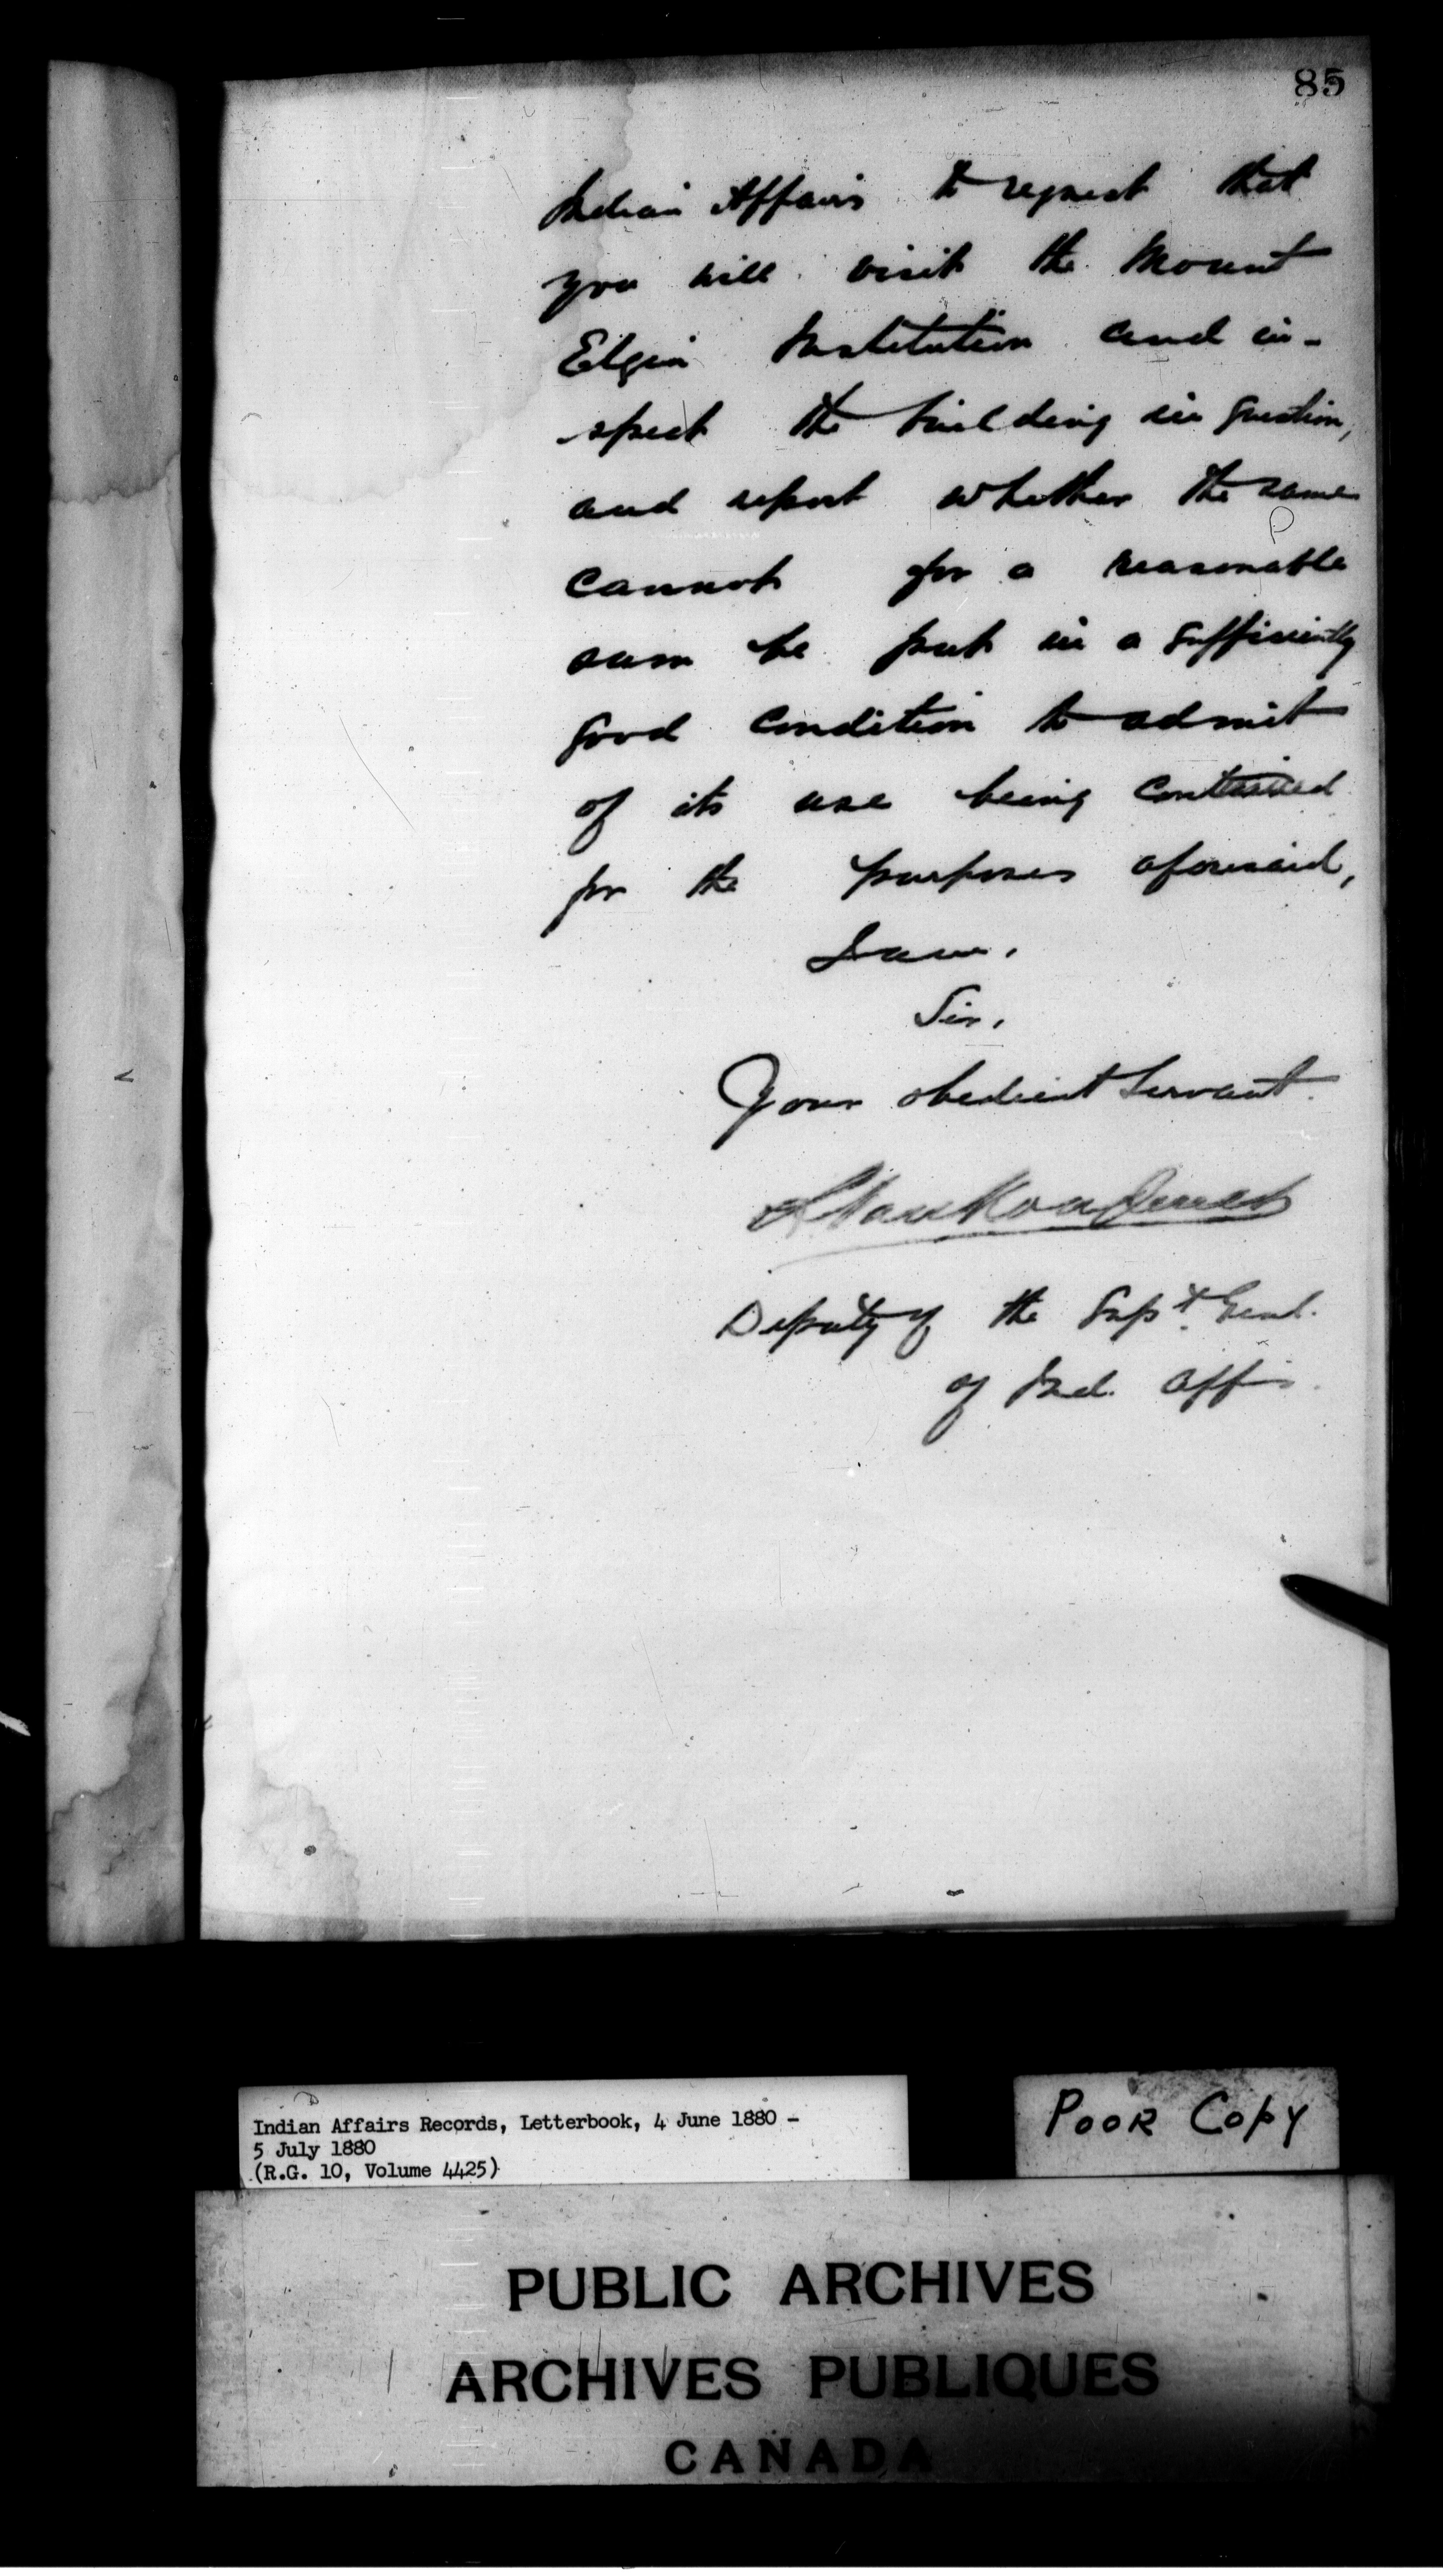 85
Indian Affairs to request that
you will visit the Mount
Elgin Institution and in-
spect the building in question,
and report whether the same
cannot for a reasonable
sum be put in a sufficiently
good condition to admit
of its use being continued
for the purposes aforesaid,
I am,
Sir,
Your obedient Servant.
L VanKoughnet
Deputy of the Supt. Genl.
of Ind. Affrs.
Indian Affairs Records, Letterbook, 4 June 1880 -
5 July 1880
(R.G. 10, Volume 4425)
POOR COPY
PUBLIC ARCHIVES
ARCHIVES PUBLIQUES
CANADA